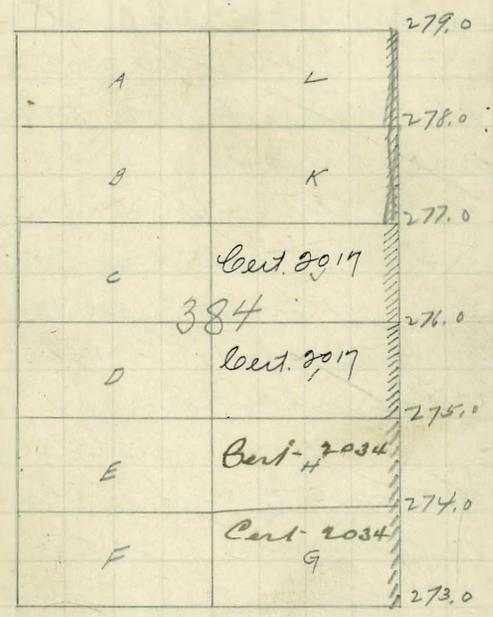 279.0
A L
278.0
B K
277.0
C Cert. 2017
384
276.0
D Cert. 2017
275.0
E Cert- 2034
H
274.0
Cert- 2034
F G
273.0